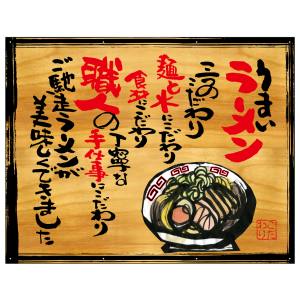 うまい
ラーメン
三つのこだわり
麺と水にこだわり
食材にこだわり
丁寧な
職人の手仕事にこだわり
ご馳走ラーメンが
美味しくできました
こだ
わり